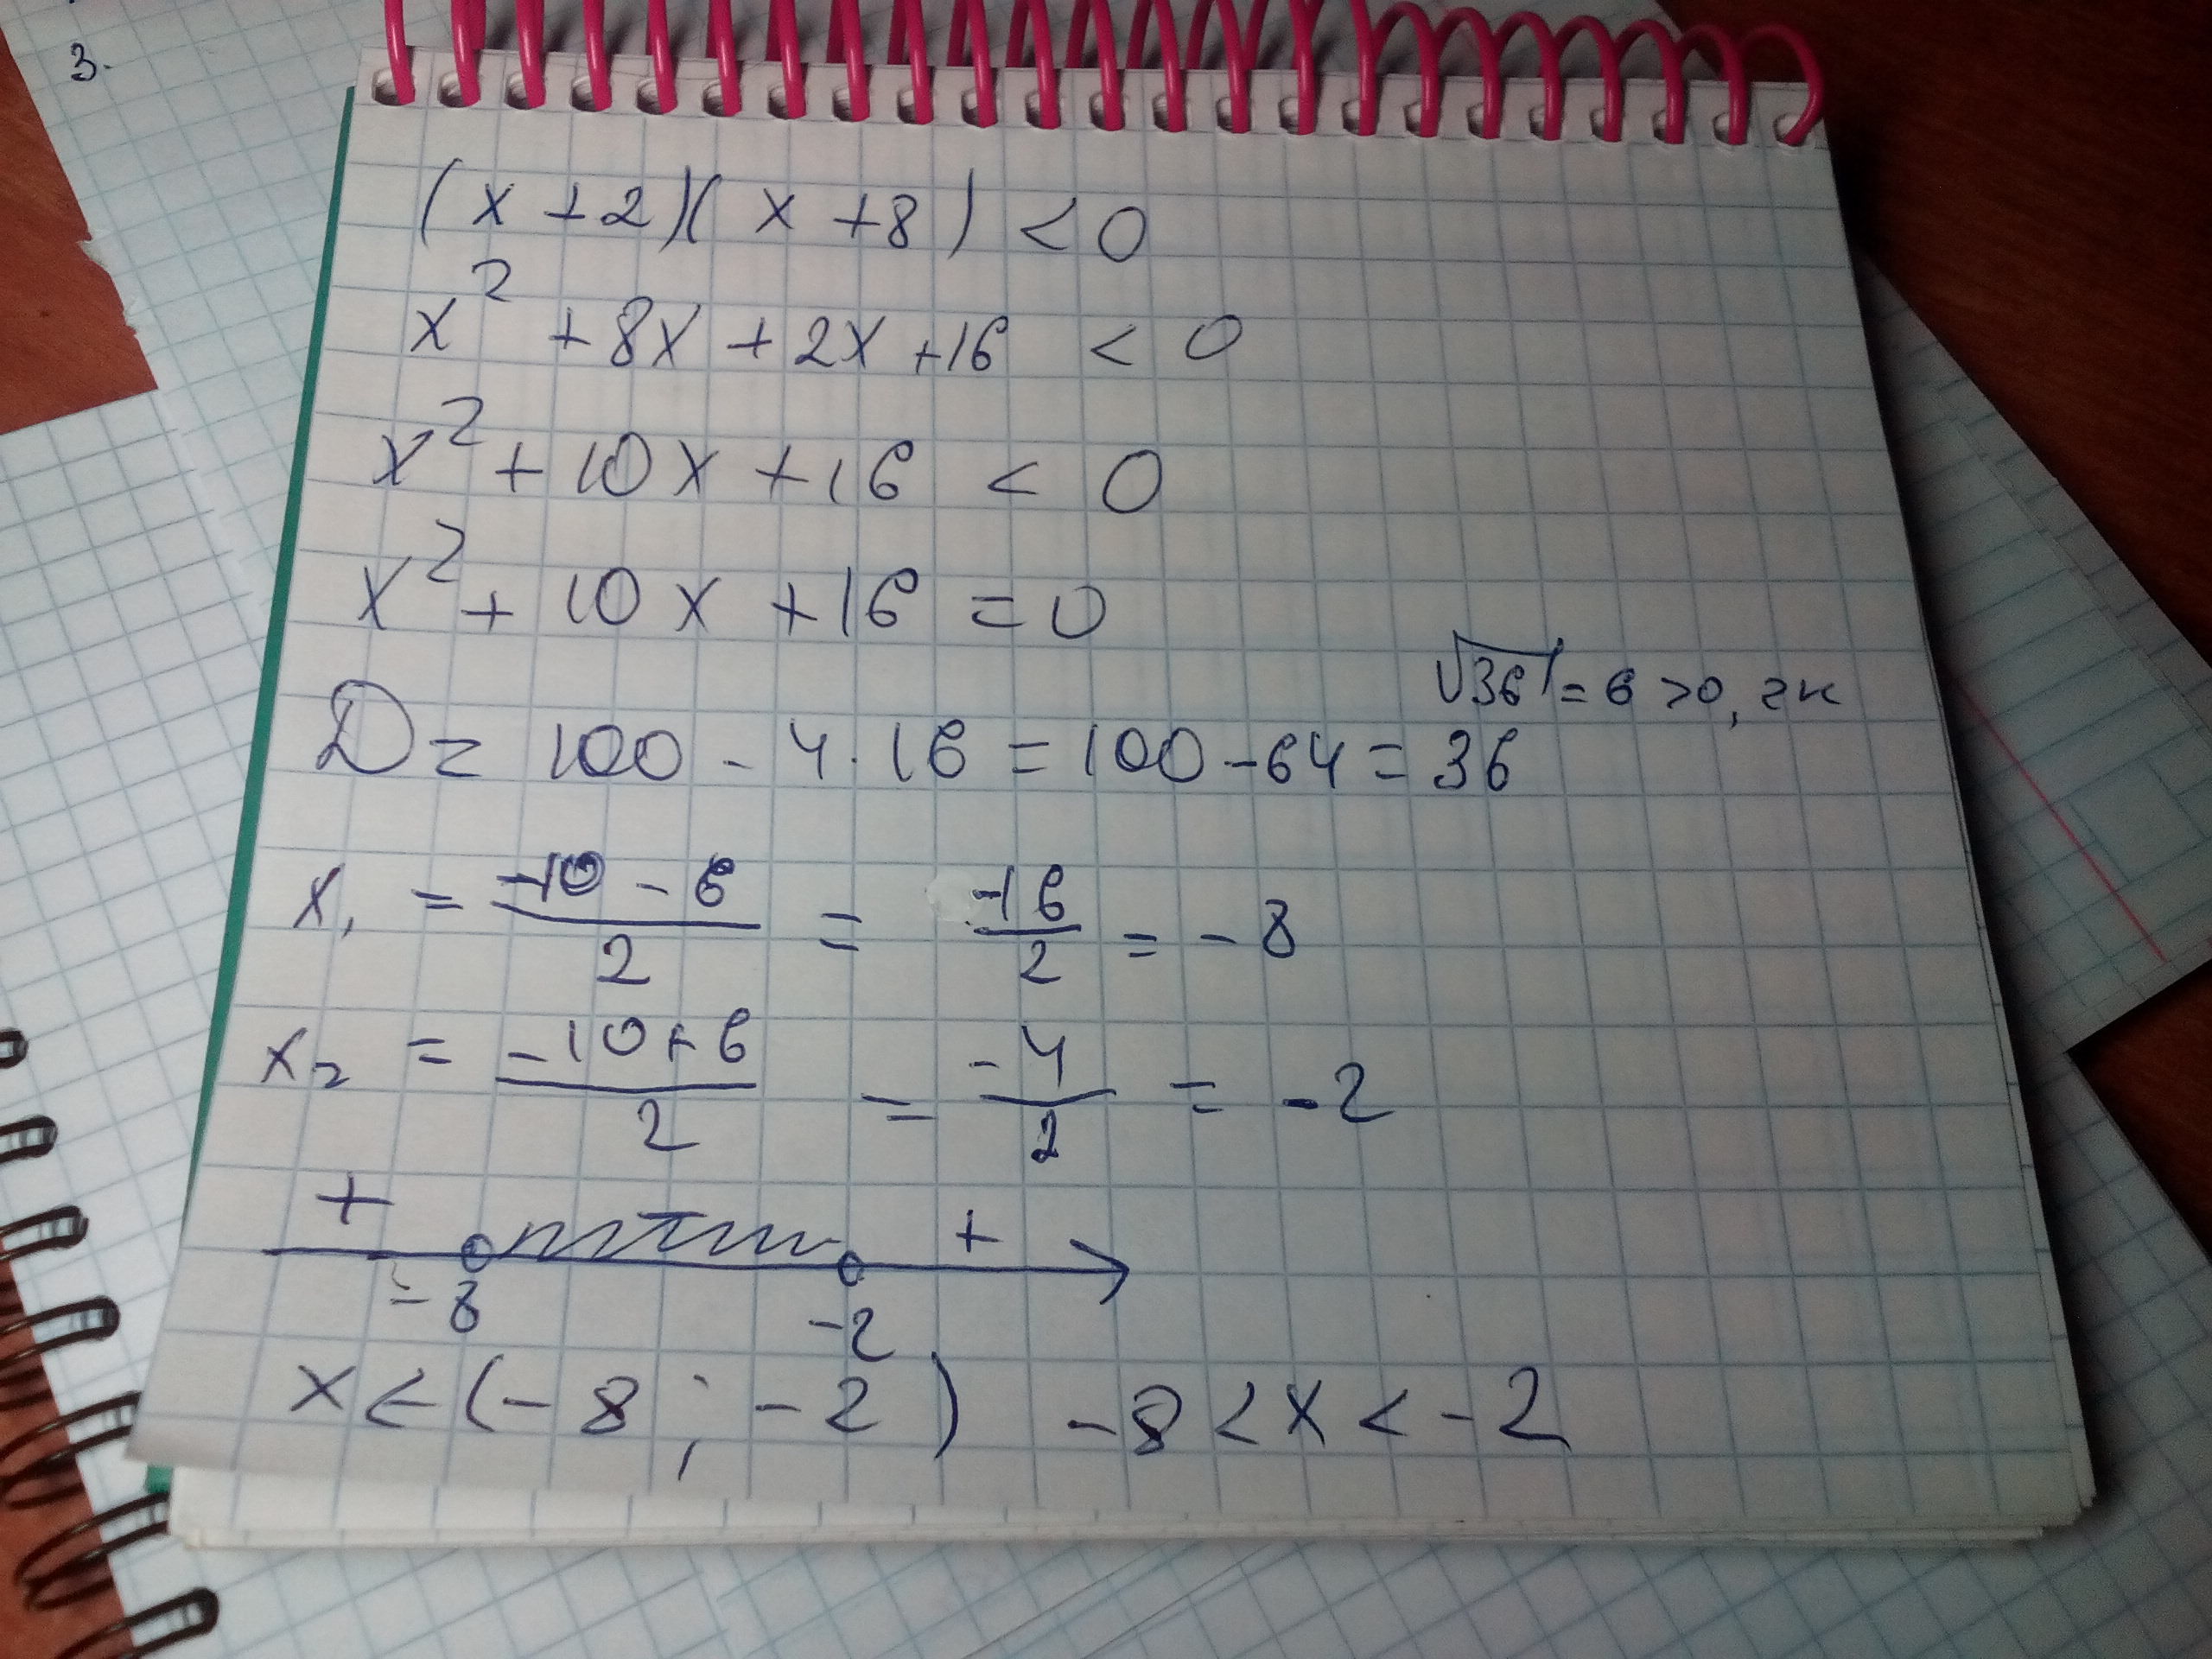 3.
(x + 2)(x + 8) < 0
x² + 8x + 2x + 16 < 0
x² + 10x + 16 < 0
x² + 10x + 16 = 0
√36 = 6 > 0, 2к
D = 100 - 4 · 16 = 100 - 64 = 36
x₁ = (-10 - 6)/2 = -16/2 = -8
x₂ = (-10 + 6)/2 = -4/2 = -2
+ +
-8 -2
x ∈ (-8 ; -2) -8 < x < -2